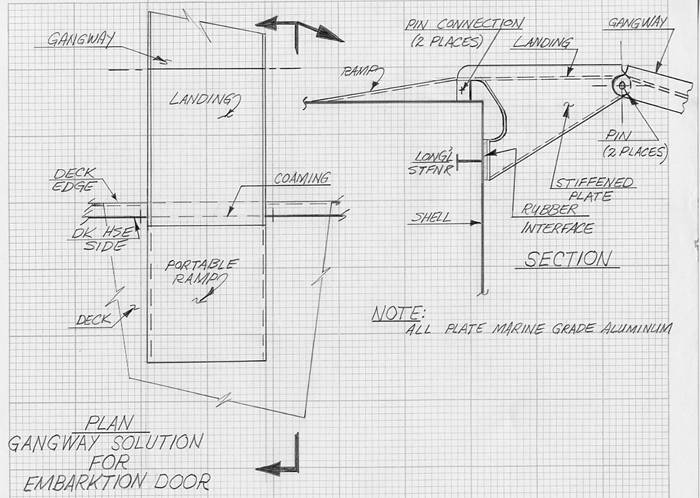 GANGWAY
LANDING
DECK
EDGE
COAMING
DK HSE
SIDE
PORTABLE
RAMP
DECK
PLAN
GANGWAY SOLUTION
FOR
EMBARKTION DOOR
PIN CONNECTION
(2 PLACES)
LANDING
GANGWAY
RAMP
PIN
(2 PLACES)
LONG'L
STFNR
STIFFENED
PLATE
SHELL
RUBBER
INTERFACE
SECTION
NOTE:
ALL PLATE MARINE GRADE ALUMINUM